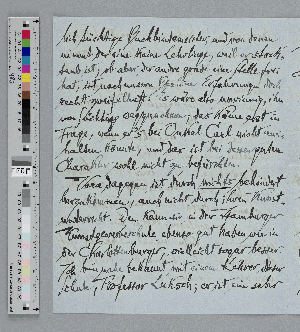 sich tüchtige Buchbindermeister, und von denen
nimmt der eine keine Lehrlinge, weil er stock-
taub ist; ob aber der andre gerade eine Stelle frei
hat, ist nach unseren Erfahrungen doch
recht zweifelhaft. Es wäre also unsinnig, ihn
von hier wegzunehmen; das könnte erst in
Frage, wenn er's bei Onkel Carl nicht aus-
halten könnte, und das ist bei dessen guten
Charakter wohl nicht zu befürchten.
Dora dagegen ist durch nichts behindert
herzukommen, auch nicht durch ihren Kunst-
unterricht. Den kann sie in der Hamburger
Kunstgewerbeschule ebenso gut haben wie in
der Charlottenburger, vielleicht sogar besser.
Ich bin nahe bekannt mit einem Lehrer dieser
Schule, Professor; er ist ein sehr